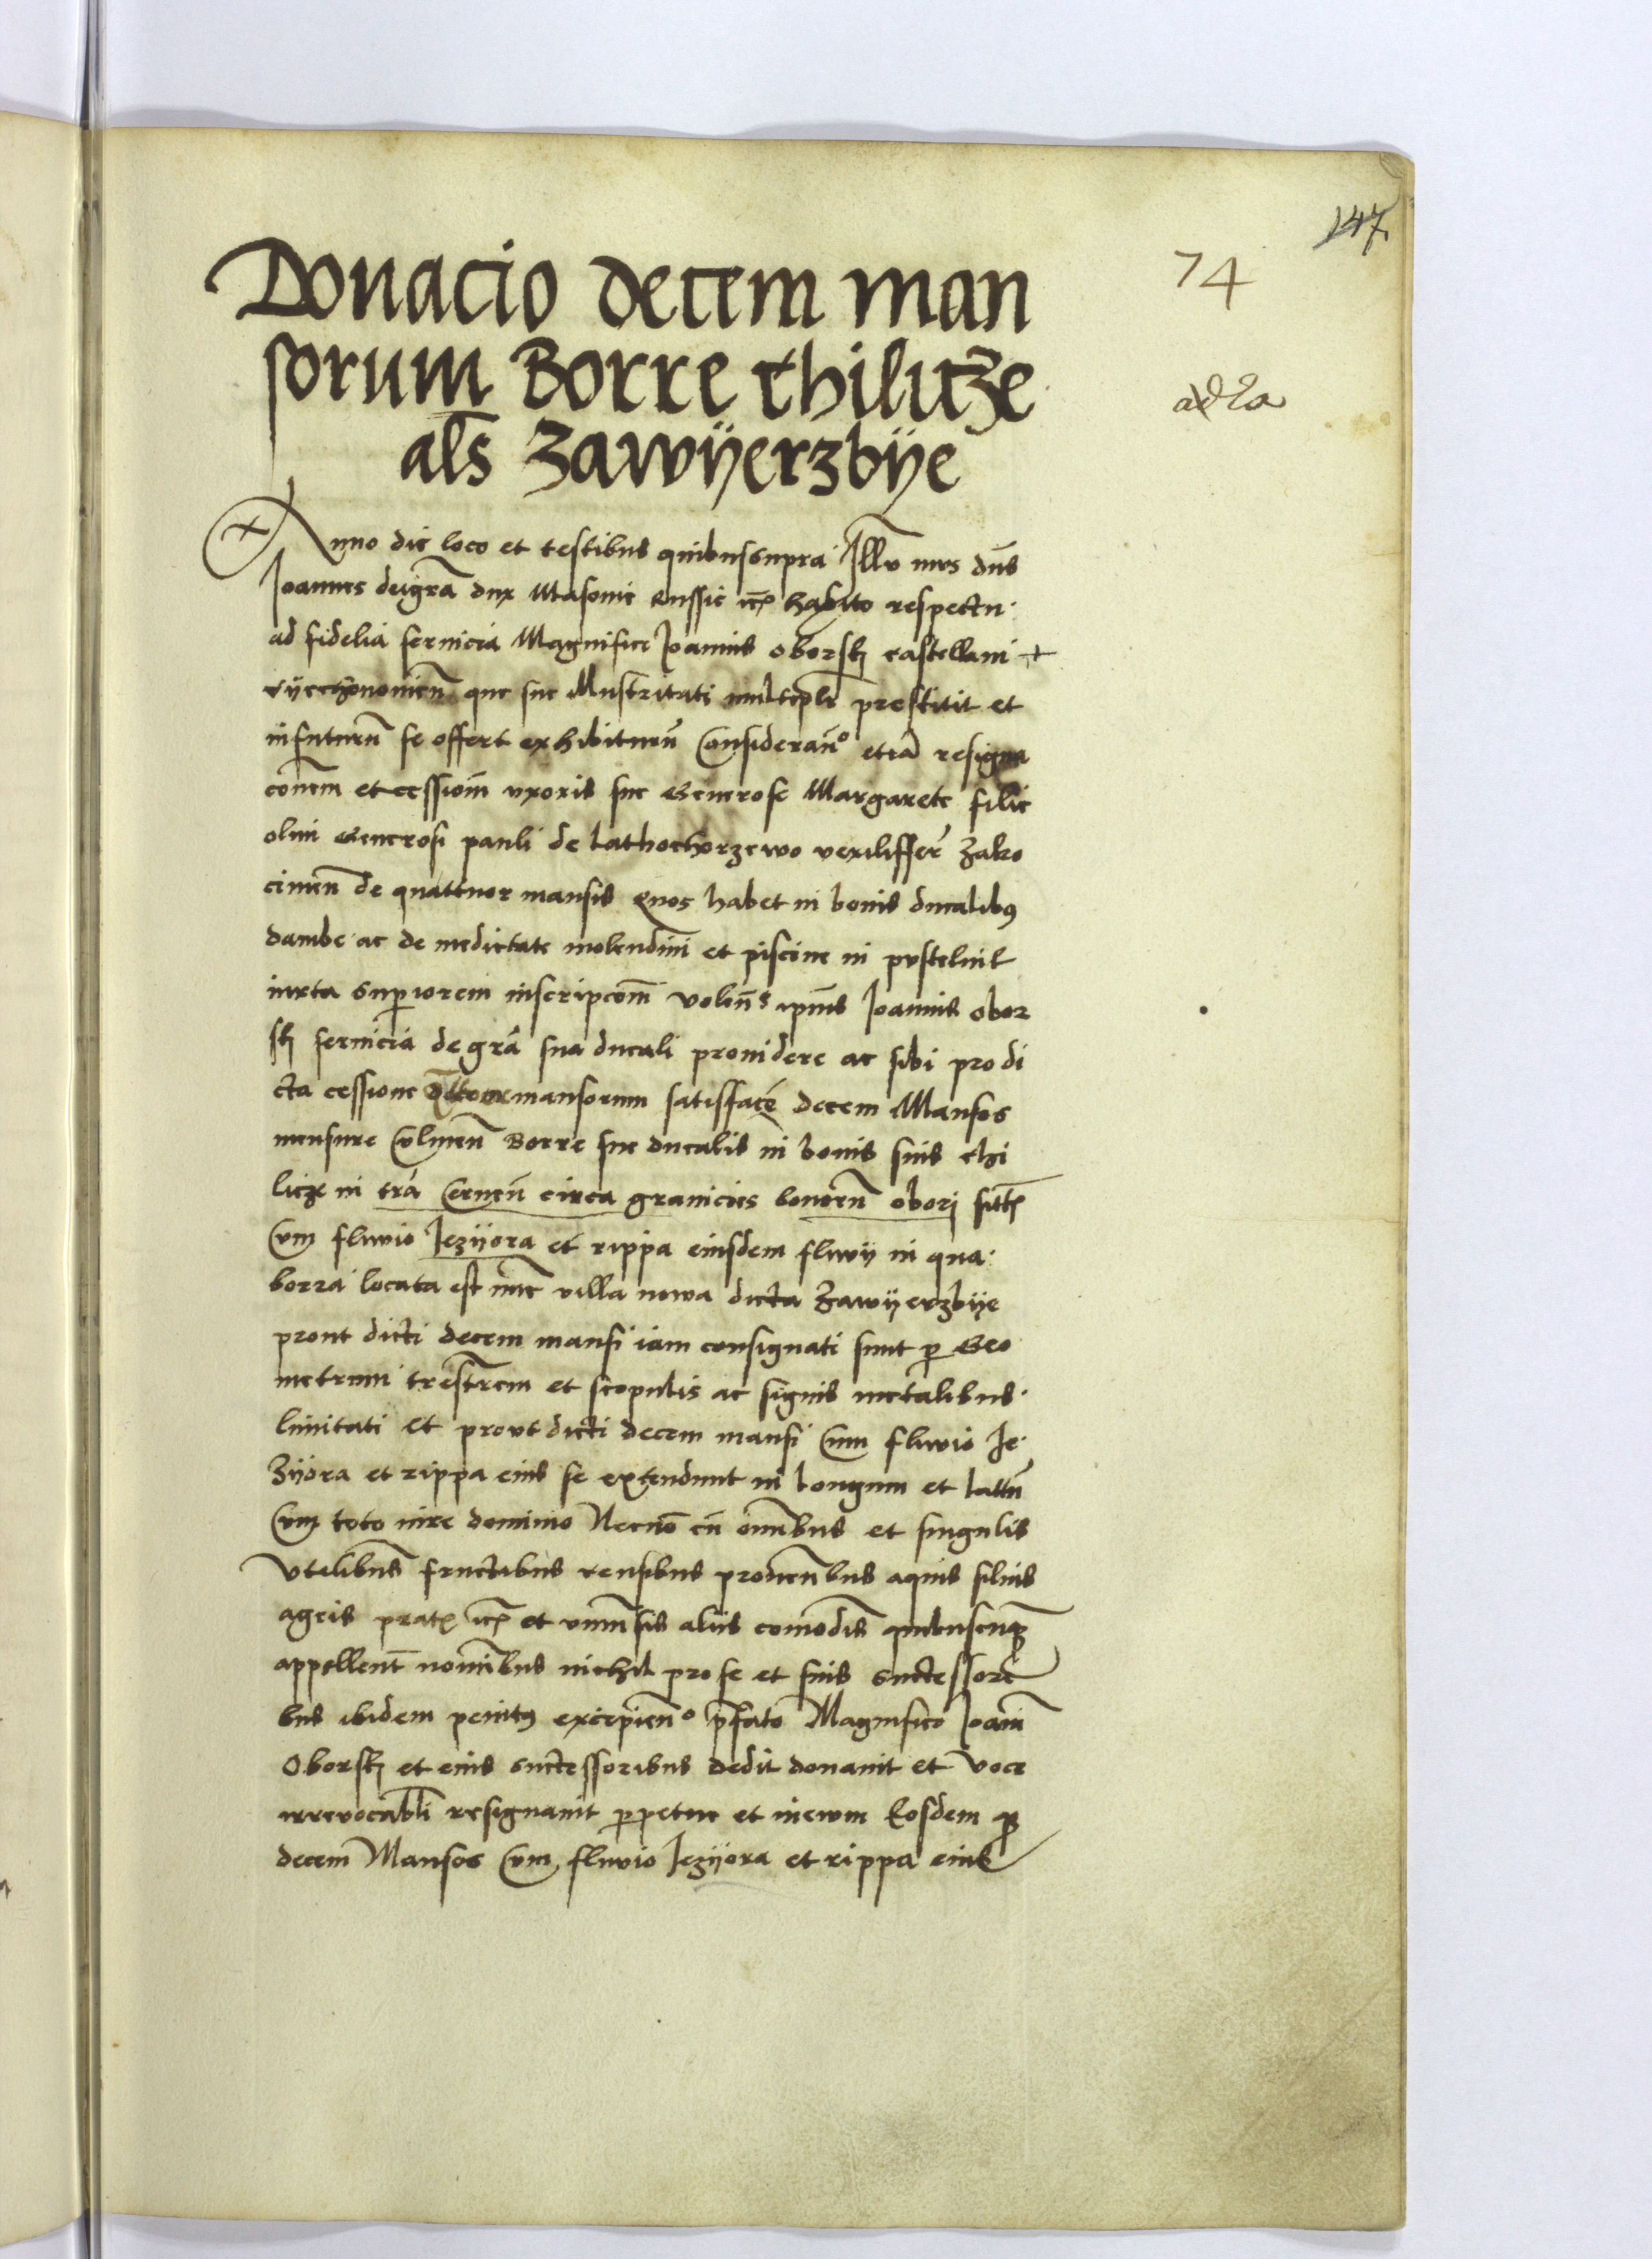 147
74
Donacio decem man
sorum Borre chilicze
als Zawÿerzbÿe
Anno die loco et testibus quibus supra Illu mus dns
Joannes dei gra dux Masouie Russie etc habito respectu
ad fidelia seruicia Magnifici Joannis oborsky castellani
que sue Illustritati multiplr prestitit et
infuturu se offert exhibituru Considerano etia resigna
conem et cessionem vxoris sue generose Margarete filie
olim generosi pauli de lathochorzewo vexilifferi Zako
cimen de quattuor mansis quos habet in bonis ducalibus
dambe ac de medietate molendini et piscine in pustelnik
iuxta superiorem inscripcom volens ipius Joannis obor
sky seruicia de gra sua ducali prouidere ac sibi pro di
cta cessione mansorum satisface decem Mansos
mensure Culmen Borre sue ducalis in bonis suis chi
licze in tra Cernen circa granicies bonoru obory sitt
Cum fluuio Jezÿora et rippa eiusdem fluuÿ in qua
borra locata est nuc villa nowa dicta Zawÿerzbÿe
prout dicti decem mansi iam consignati sunt per Geo
metrum trestrem et scopulis ac signis metalibus
limitati et prout dicti decem mansi Cum fluuio Je
Zÿora et rippa eius se extendunt in longum et lattu
Cum toto iure dominio Necno cu omibus et singulis
Vtilibus fructibus censibus prouenbus aquis siluis
agris prat etc et vniuersis aliis comodis quibuscuq
appellent nominbus nichil pro se et suis successori
bus ibidem penitus excipieno pfato Magnifico Joani
Oborsky et eius successoribus dedit donauit et Voce
irreuocabli resignauit perpetue et ineum Eosdem
decem Mansos Cum fluuio Jezÿora et rippa eius